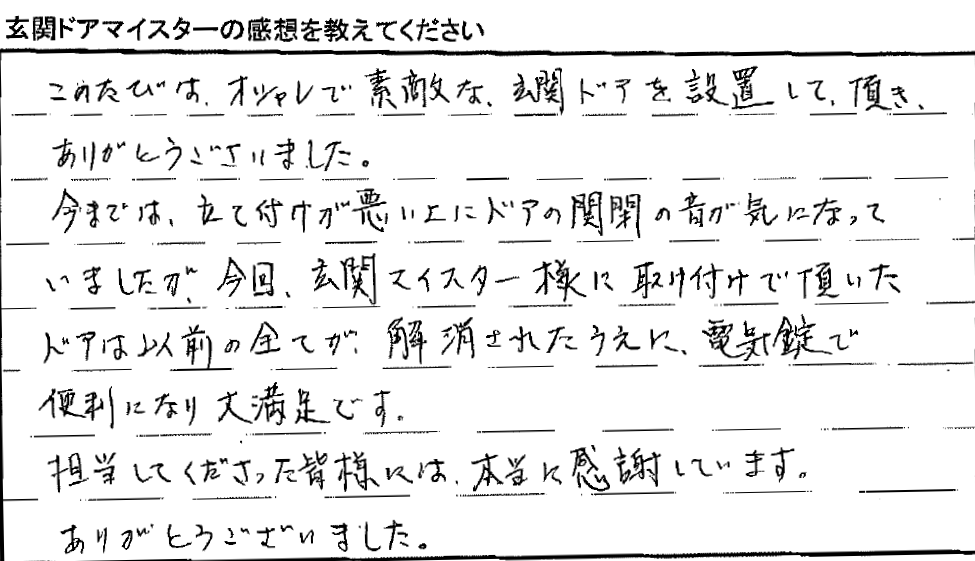 玄関ドアマイスターの感想を教えてください
このたびは、オシャレで素敵な、玄関ドアを設置して、頂き、
ありがとうございました。
今までは、立て付けが悪い上にドアの関閉の音が気になって
いましたが、今回、玄関マイスター様に取り付けで頂いた
ドアは以前の全てが、解消されたうえに、電気錠で
便利になり大満足です。
担当してくださった皆様には、本当に感謝しています。
ありがとうございました。